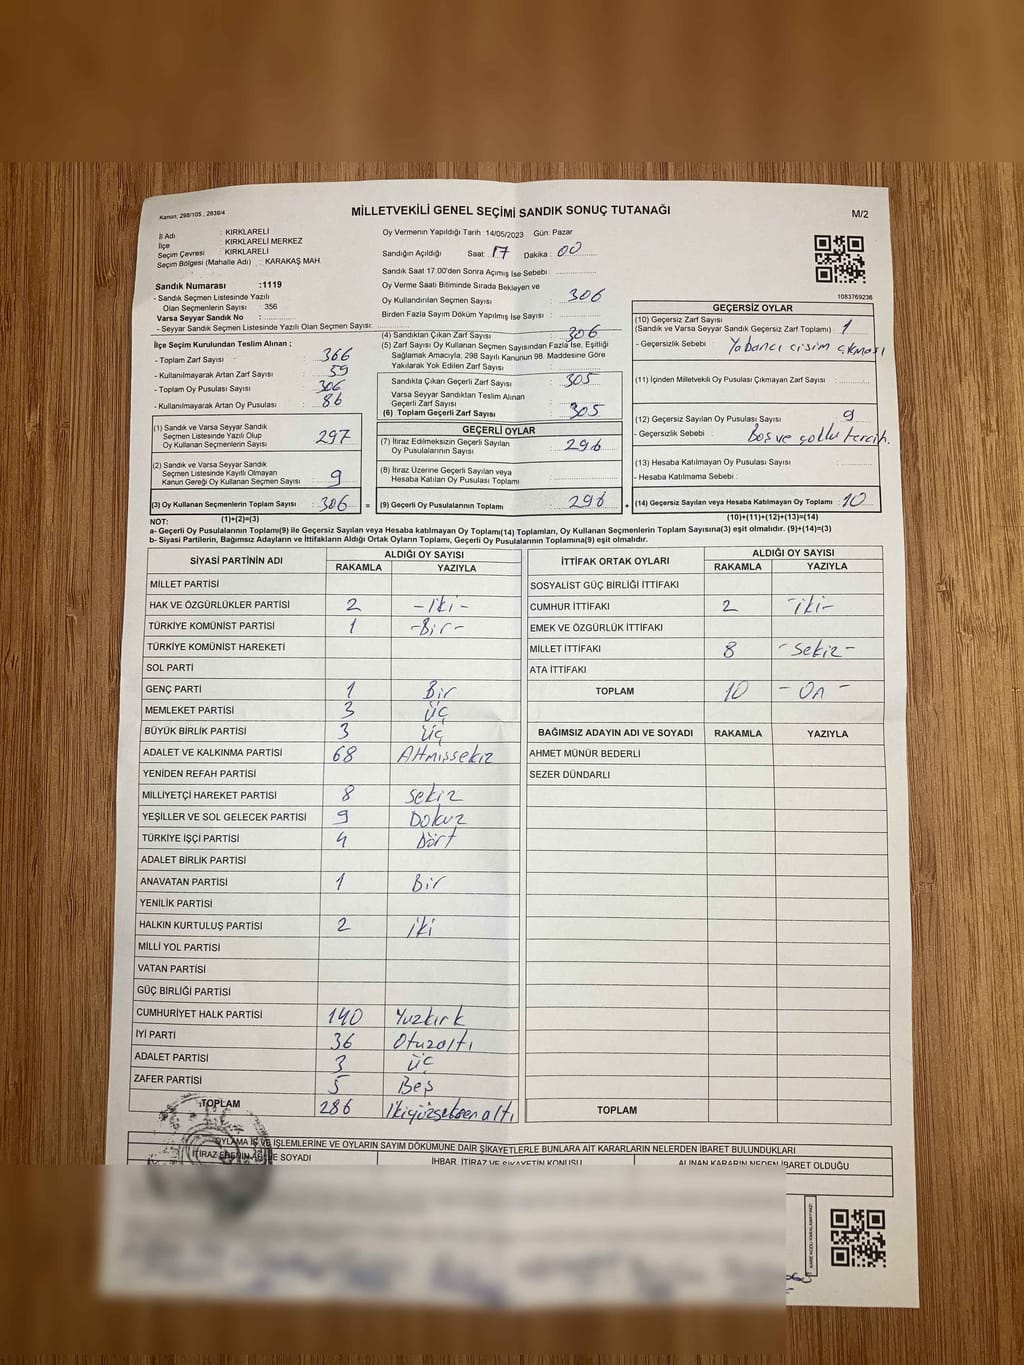 Kanun; 298/105 , 2839/4
MİLLETVEKİLİ GENEL SEÇİMİ SANDIK SONUÇ TUTANAĞI
M/2
İl Adı : KIRKLARELİ
İlçe : KIRKLARELİ MERKEZ
Seçim Çevresi : KIRKLARELİ
Seçim Bölgesi (Mahalle Adı) : KARAKAŞ MAH.
Sandık Numarası :1119
- Sandık Seçmen Listesinde Yazılı
Olan Seçmenlerin Sayısı : 356
Varsa Seyyar Sandık No :
- Seyyar Sandık Seçmen Listesinde Yazılı Olan Seçmen Sayısı:
İlçe Seçim Kurulundan Teslim Alınan ;
- Toplam Zarf Sayısı : 366
- Kullanılmayarak Artan Zarf Sayısı : 59
- Toplam Oy Pusulası Sayısı : 306
- Kullanılmayarak Artan Oy Pusulası : 86
(1) Sandık ve Varsa Seyyar Sandık
Seçmen Listesinde Yazılı Olup
Oy Kullanan Seçmenlerin Sayısı : 297
(2) Sandık ve Varsa Seyyar Sandık
Seçmen Listesinde Kayıtlı Olmayan
Kanun Gereği Oy Kullanan Seçmen Sayısı : 9
(3) Oy Kullanan Seçmenlerin Toplam Sayısı : 306 =
(1)+(2)=(3)
Oy Vermenin Yapıldığı Tarih :14/05/2023 Gün: Pazar
Sandığın Açıldığı Saat : 17 Dakika : 00
Sandık Saat 17.00'den Sonra Açımış İse Sebebi :
Oy Verme Saati Bitiminde Sırada Bekleyen ve
Oy Kullandırılan Seçmen Sayısı : 306
Birden Fazla Sayım Döküm Yapılmış İse Sayısı :
(4) Sandıktan Çıkan Zarf Sayısı : 306
(5) Zarf Sayısı Oy Kullanan Seçmen Sayısından Fazla İse, Eşitliği
Sağlamak Amacıyla, 298 Sayılı Kanunun 98. Maddesine Göre
Yakılarak Yok Edilen Zarf Sayısı :
Sandıkta Çıkan Geçerli Zarf Sayısı : 305
Varsa Seyyar Sandıktan Teslim Alınan
Geçerli Zarf Sayısı :
(6) Toplam Geçerli Zarf Sayısı : 305
GEÇERLİ OYLAR
(7) İtiraz Edilmeksizin Geçerli Sayılan
Oy Pusulalarının Sayısı : 296
(8) İtiraz Üzerine Geçerli Sayılan veya
Hesaba Katılan Oy Pusulası Toplamı :
(9) Geçerli Oy Pusulalarının Toplamı : 296 +
1083769236
GEÇERSİZ OYLAR
(10) Geçersiz Zarf Sayısı
(Sandık ve Varsa Seyyar Sandık Geçersiz Zarf Toplamı) : 1
- Geçersizlik Sebebi : Yabancı cisim çıkması
(11) İçinden Milletvekili Oy Pusulası Çıkmayan Zarf Sayısı :
(12) Geçersiz Sayılan Oy Pusulası Sayısı : 9
- Geçersizlik Sebebi : Boş ve çoklu tercih.
(13) Hesaba Katılmayan Oy Pusulası Sayısı :
- Hesaba Katılmama Sebebi :
(14) Geçersiz Sayılan veya Hesaba Katılmayan Oy Toplamı : 10
(10)+(11)+(12)+(13)=(14)
NOT:
a- Geçerli Oy Pusulalarının Toplamı(9) ile Geçersiz Sayılan veya Hesaba katılmayan Oy Toplamı(14) Toplamları, Oy Kullanan Seçmenlerin Toplam Sayısına(3) eşit olmalıdır. (9)+(14)=(3)
b- Siyasi Partilerin, Bağımsız Adayların ve İttifakların Aldığı Ortak Oyların Toplamı, Geçerli Oy Pusulalarının Toplamına(9) eşit olmalıdır.
SİYASİ PARTİNİN ADI ALDIĞI OY SAYISI
RAKAMLA YAZIYLA
MİLLET PARTİSİ
HAK VE ÖZGÜRLÜKLER PARTİSİ 2 -iki-
TÜRKİYE KOMÜNİST PARTİSİ 1 -Bir-
TÜRKİYE KOMÜNİST HAREKETİ
SOL PARTİ
GENÇ PARTİ 1 Bir
MEMLEKET PARTİSİ 3 üç
BÜYÜK BİRLİK PARTİSİ 3 üç
ADALET VE KALKINMA PARTİSİ 68 Altmışsekiz
YENİDEN REFAH PARTİSİ
MİLLİYETÇİ HAREKET PARTİSİ 8 sekiz
YEŞİLLER VE SOL GELECEK PARTİSİ 9 Dokuz
TÜRKİYE İŞÇİ PARTİSİ 4 Dört
ADALET BİRLİK PARTİSİ
ANAVATAN PARTİSİ 1 Bir
YENİLİK PARTİSİ
HALKIN KURTULUŞ PARTİSİ 2 iki
MİLLİ YOL PARTİSİ
VATAN PARTİSİ
GÜÇ BİRLİĞİ PARTİSİ
CUMHURİYET HALK PARTİSİ 140 Yuzkırk
İYİ PARTİ 36 Otuzaltı
ADALET PARTİSİ 3 üç
ZAFER PARTİSİ 5 Beş
TOPLAM 286 ikiyüzseksen altı
İTTİFAK ORTAK OYLARI ALDIĞI OY SAYISI
RAKAMLA YAZIYLA
SOSYALİST GÜÇ BİRLİĞİ İTTİFAKI
CUMHUR İTTİFAKI 2 -iki-
EMEK VE ÖZGÜRLÜK İTTİFAKI
MİLLET İTTİFAKI 8 -sekiz-
ATA İTTİFAKI
TOPLAM 10 -On-
BAĞIMSIZ ADAYIN ADI VE SOYADI RAKAMLA YAZIYLA
AHMET MÜNÜR BEDERLİ
SEZER DÜNDARLI
TOPLAM
OYLAMA İŞ VE İŞLEMLERİNE VE OYLARIN SAYIM DÖKÜMÜNE DAİR ŞİKAYETLERLE BUNLARA AİT KARARLARIN NELERDEN İBARET BULUNDUKLARI
İTİRAZ EDENİN ADI VE SOYADI İHBAR, İTİRAZ VE ŞİKAYETİN KONUSU ALINAN KARARIN NEDEN İBARET OLDUĞU